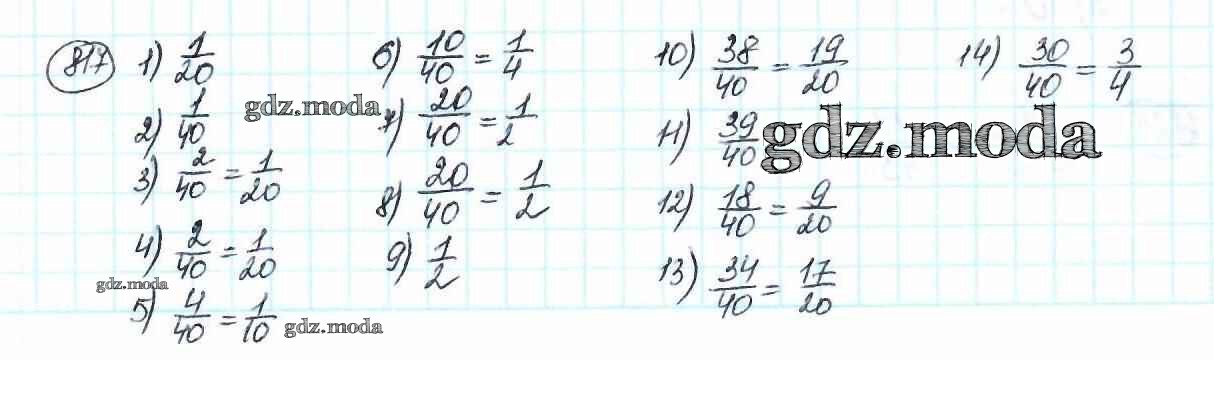 817
1) 1/20
2) 1/40
3) 2/40 = 1/20
4) 2/40 = 1/20
5) 4/40 = 1/10
6) 10/40 = 1/4
7) 20/40 = 1/2
8) 20/40 = 1/2
9) 1/2
10) 38/40 = 19/20
11) 39/40
12) 18/40 = 9/20
13) 34/40 = 17/20
14) 30/40 = 3/4
gdz.moda
gdz.moda
gdz.moda
gdz.moda